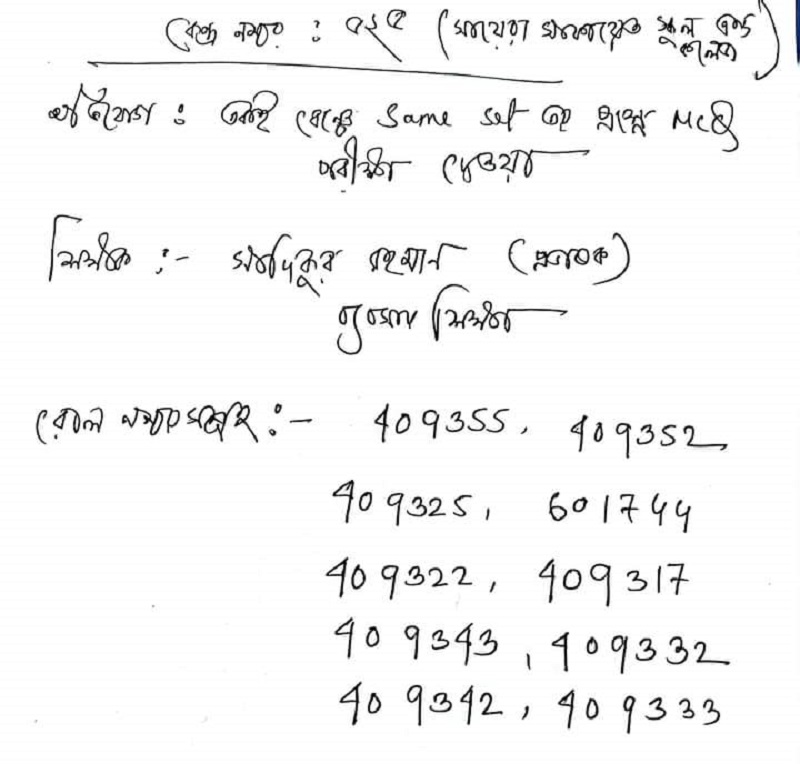 কেন্দ্র নম্বর : ৭২৫ ( স্কুল এন্ড
কলেজ)
অভিযোগ : একই বেঞ্চে Same set এর প্রশ্নে MCQ
পরীক্ষা দেওয়া
শিক্ষক :- রহমান (প্রভাষক)
ভূগোল শিক্ষক
রোল নম্বরসমূহ :- 409355, 409352,
409325, 601744
409322, 409317
409343, 409332
409342, 409333